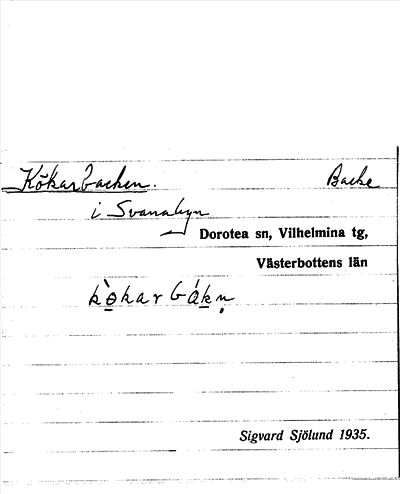 Kökarbacken. Backe
i Svanabyn
Dorotea sn, Vilhelmina tg,
Västerbottens län
Sigvard Sjölund 1935.